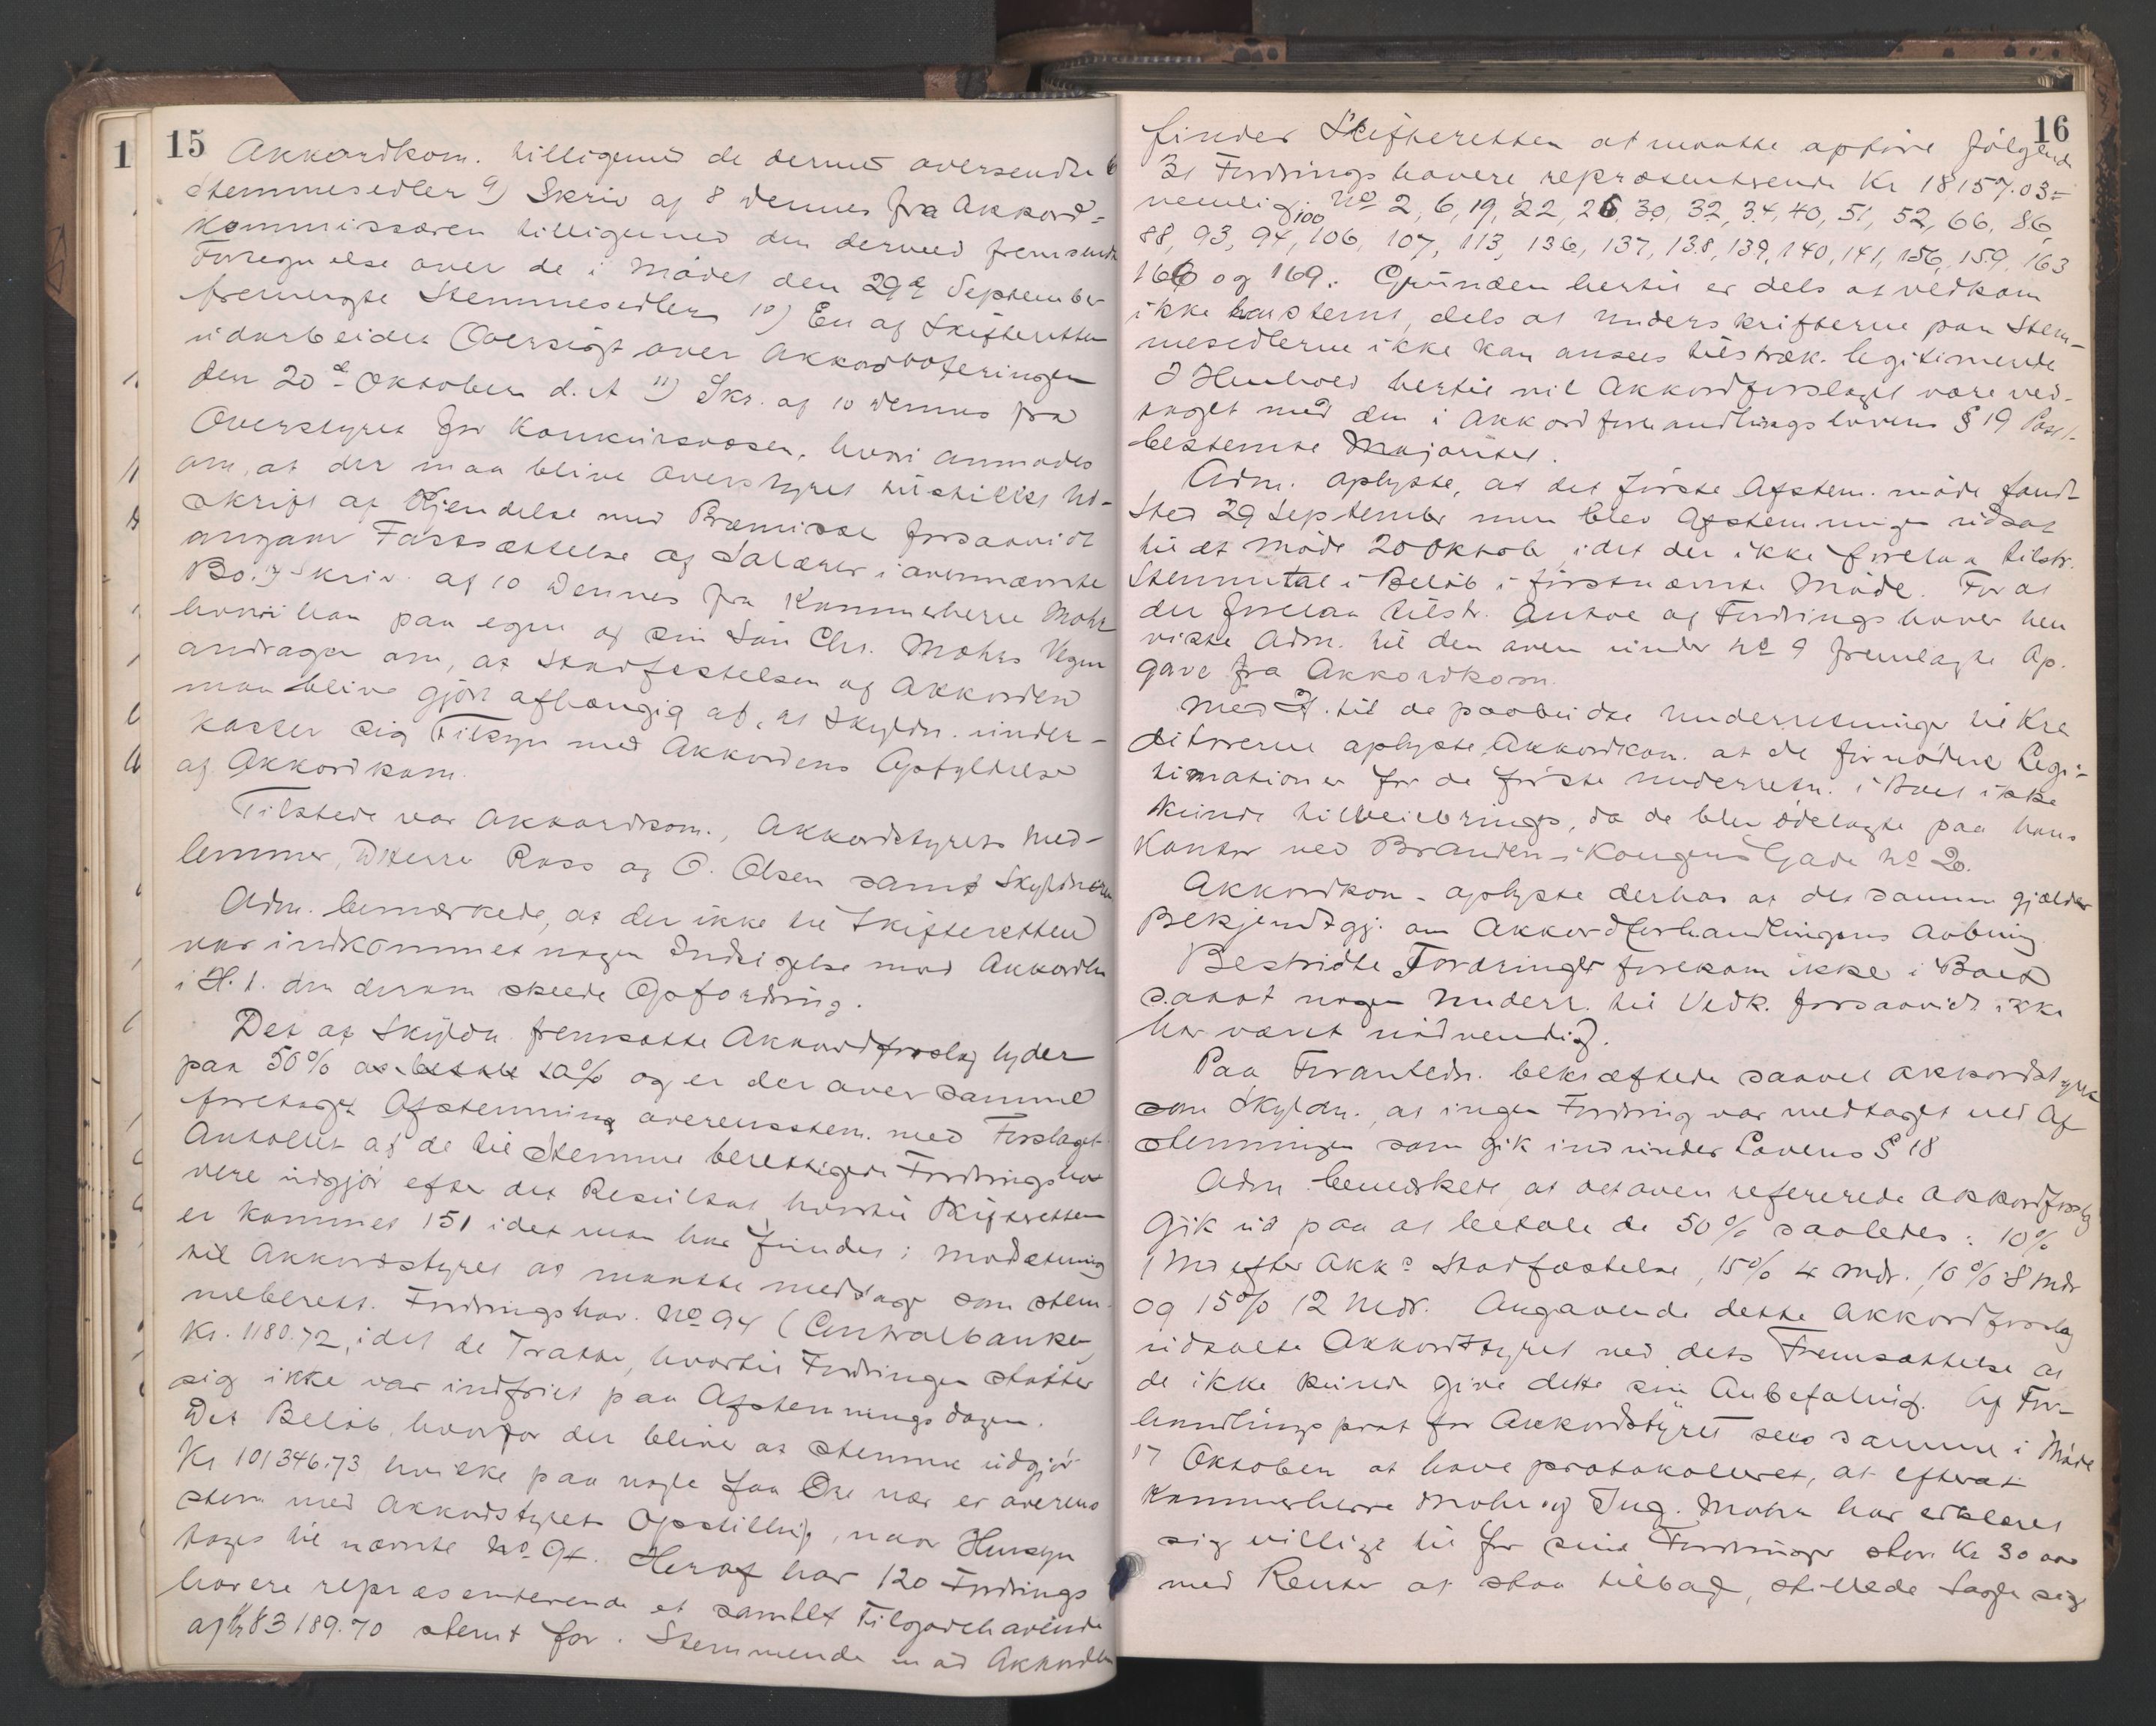 15
Akkordkom. tilligemed de dermed oversendte 6
Stemmesedler 9) Skriv af 8 dennes fra Akkord-
kommissæren tilligemed den derved fremsendte
Fortegnelse over de i Mødet den 29de September
fremlagte Stemmesedler 10) En af Skifteretten
udarbeidet Oversigt over Akkordvoteringen
den 20de Oktober d. A 11) Skr. af 10 dennes fra
Overstyret for Konkursvæsen, hvori anmodes
om, at der maa blive Overstyret tilstillet Ud-
skrift af Kjendelse med Præmisser forsaavidt
angaar Fastsættelse af Salærer i ovennævnte
Bo. Skriv. af 10 dennes fra Kammerherre Mohr
hvori han paa egne og sin Søn Chr. Mohrs Vegne
andrager om, at Stadfestelsen af Akkorden
maa blive gjort afhængig af, at Skyldn. under-
kaster sig Tilsyn med Akkordens Opfyldelse
af Akkordkom.
Tilstede var Akkordkom., Akkordstyrets Med-
lemmer, DHerrer Ross og O. Olsen samt Skyldneren
Adm. bemærkede, at der ikke til Skifteretten
var indkommet nogen Indsigelse mod Akkorden
i H. t. den derom skeede Opfordring.
Det af Skyldn fremsatte Akkordforslag lyder
paa 50% og er der over samme
foretaget Afstemning overensstem. med Forslaget
Antallet af de til Stemme berettigede Fordringsha-
vere udgjør efter det Resultat hvortil Skifteretten
er kommet 151 idet man har fundet i Modsetning
til Akkordstyret at maatte medtage som stem-
meberett. Fordringshav. No 94 (Centralbanken
Kr. 1180.72, idet de Tratte, hvortil Fordringen støtter
sig ikke var indfriet paa Afstemningsdagen.
Det Beløb, hvorfor der bliver at stemme udgjør
Kr 101346.73 hvilke paa nogle faa Øre nær er overens
stem med Akkordstyrets Opstilling, naar Hensyn
tages til nævnte No 94. Heraf har 120 Fordrings
havere repræsenterende et samlet Tilgodehavende
af Kr 83189.70 stemt for. Stemmende mod Akkorden
16
finder Skifteretten at maatte opføre følgende
31 Fordringshavere repræsenterende Kr 18157.03 =
nemlig: No 2, 6, 19, 22, 26, 30, 32, 34, 40, 51, 52, 66, 86,
88, 93, 94, 100 106, 107, 113, 136, 137, 138, 139, 140, 141, 156, 159, 163
166 og 169. Grunden hertil er dels at vedkom
ikke har stemt, dels at Underskrifterne paa Stem-
mesedlerne ikke kan ansees tilstræk. legitimerede
I Henhold hertil vil Akkordforslaget være ved-
taget med den i Akkordforhandlingslovens § 19 Post 1.
bestemte Majoritet.
Adm. oplyste, at det første Afstem. møde fandt
Sted 29 September men blev Afstemningen udsat
til et Møde 20 Oktober, idet der ikke forelaa tilstr.
Stemmetal i Beløb i førstnævnte Møde. For at
der forelaa tilstr. Antal af Fordringshaver hen
viste Adm. til den oven under No 9 fremlagte Op.
gave fra Akkordkom.
Med H. til de paabudte Underretninger til Kre
ditorerne oplyste Akkordkom. at de fornødne Legi-
timationer for de første Underretn. i Boet ikke
kunde tilveiebringes, da de blev ødelagte paa hans
Kontor ved Branden i Kongens Gade No 20.
Akkordkom. oplyste derhos at det samme gjælder
Bekjendtgj. om Akkordforhandlingens Aabning
Bestridte Fordringer forekom ikke i Boet
saaat nogen Underr. til Vedk. forsaavidt ikke
har været nødvendig.
Paa Foranledn. bekræftede saavel Akkordstyret
som Skyldn., at ingen Fordring var medtaget ved Af
stemningen som gik ind under Lovens § 18
Adm bemerkede at det oven refererede Akkordforslag
gik ud paa at betale de 50% saaledes: 10%
1 Md efter Akks Stadfæstelse, 15% 4 Mdr., 10% 8 Mdr
og 15% 12 Mdr. Angaaende dette Akkordforslag
udtalte Akkordstyret ved dets Fremsættelse at
de ikke kunde give dette sin Anbefaling. Af For-
handlingsprot for Akkordstyret sees samme i Møde
17 Oktober at have protokolleret, at efterat
Kammerherre Mohr og Ing. Mohr har erklæret
sig villige til for sine Fordringer stor Kr 30 000
med Renter at staa tilbage, stillede Sagen sig